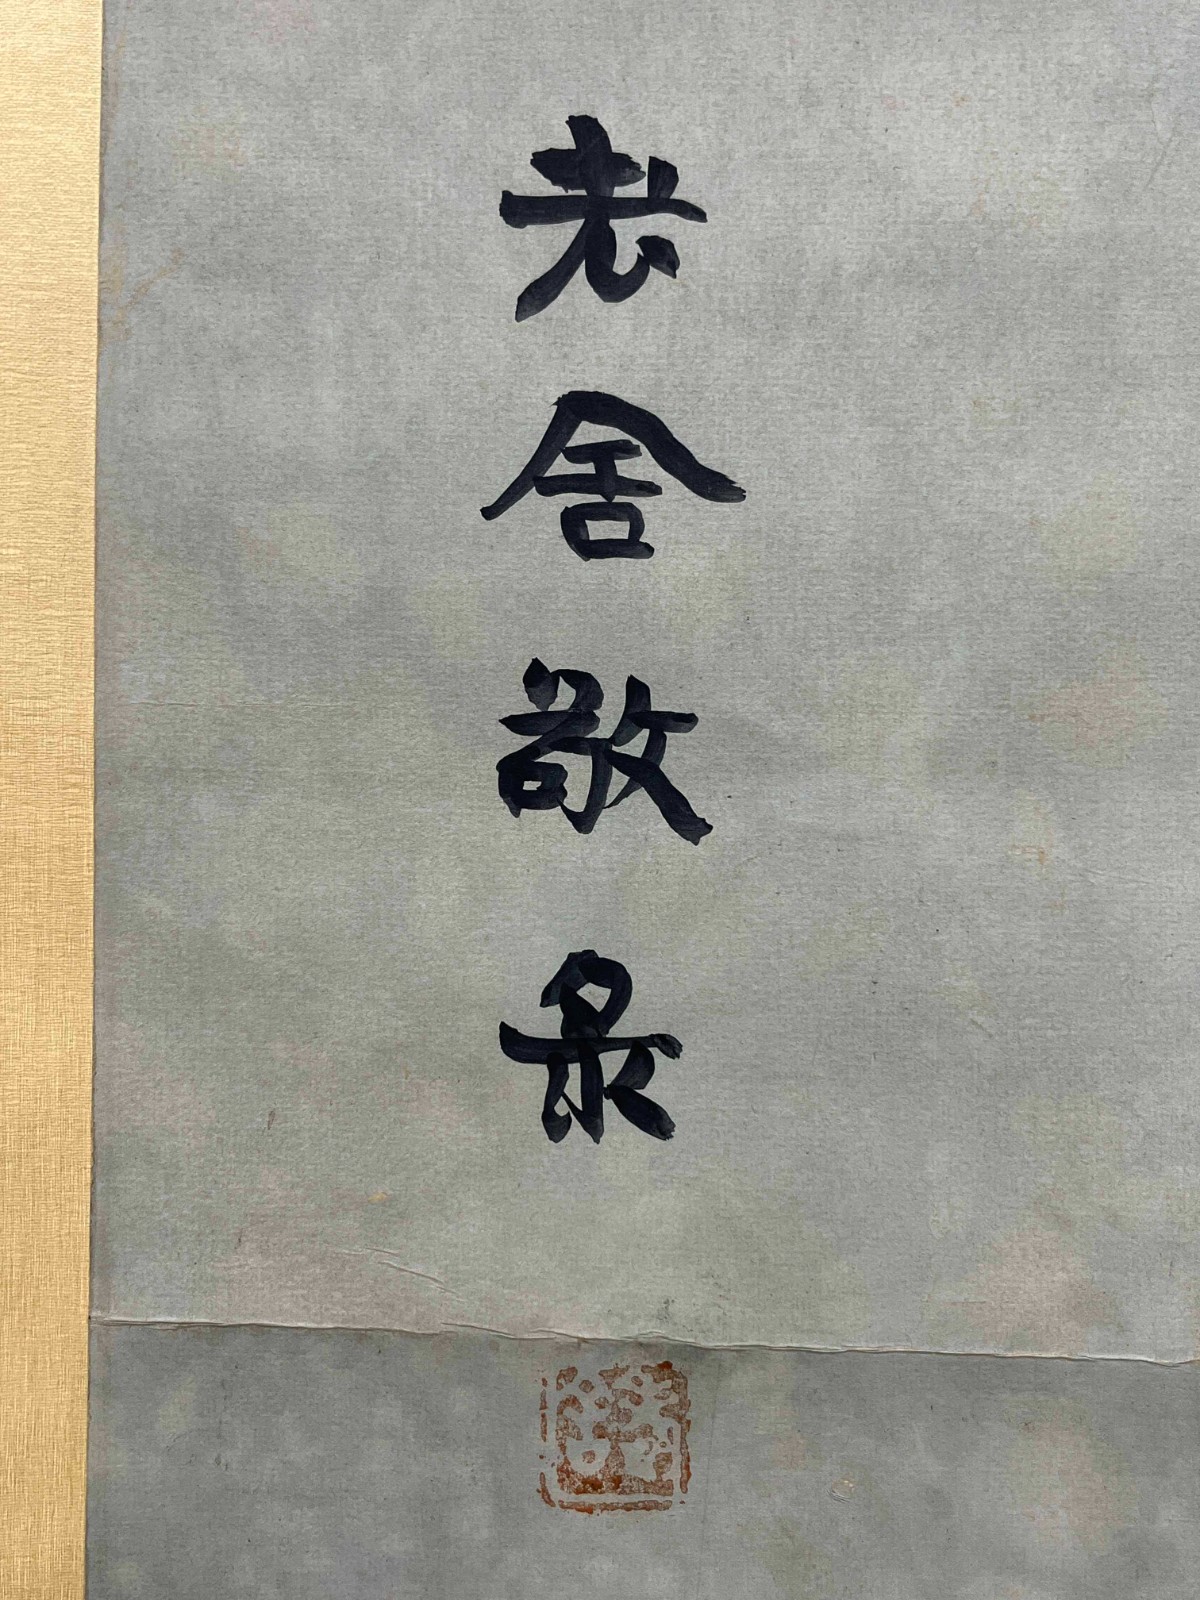 老舍敬录